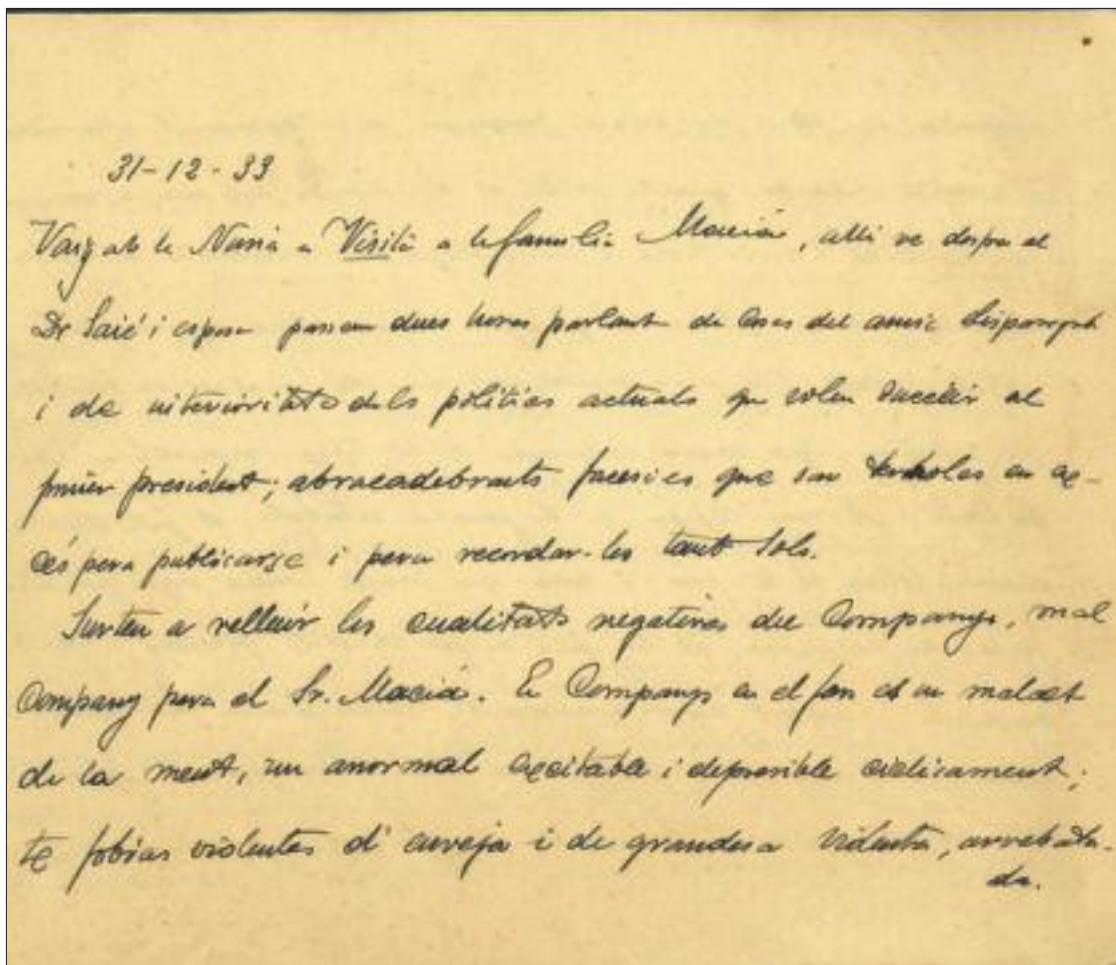 31-12-33
Vaig ab la Nuria a Visitá a la familia Maciá, alli ve despres el
Dr Saié i esposa passem dues horas parlant de coses del amic desparegut
i de interioritats dels politics actuals que volen succeir al
primer president; abracadebrants facesies que son en ex-
cés pera publicarse i pera recordar-les tant sols.
Surten a relleuir les cualitats negatives de Companys, mal
Company pera el Sr. Maciá. En Companys en el fon es un malalt
de la ment, un anormal excitable i depresible ciclicament;
te fobias violentes d'enveja i de grandesa violenta, arrebata-
da.